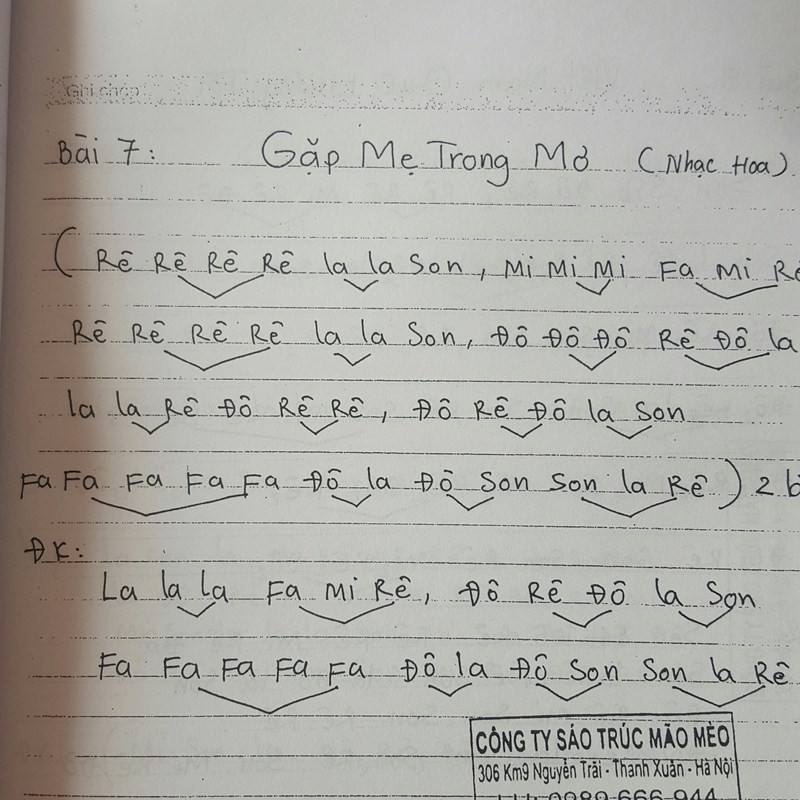 Ghi chép
Bài 7: Gặp Mẹ Trong Mơ (Nhạc Hoa)
(Rê Rê Rê Rê la la Son, Mi Mi Mi Fa Mi Rê
Rê Rê Rê Rê la la Son, Đô Đô Đô Rê Đô la
la la Rê Đô Rê Rê, Đô Rê Đô la Son
Fa Fa Fa Fa Fa Đô la Đô Son Son la Rê) 2
ĐK:
La la la Fa Mi Rê, Đô Rê Đô la Son
Fa Fa Fa Fa Fa Đô la Đô Son Son la Rê
CÔNG TY SÁO TRÚC MÃO MÈO
306 Km9 Nguyễn Trãi - Thanh Xuân - Hà Nội